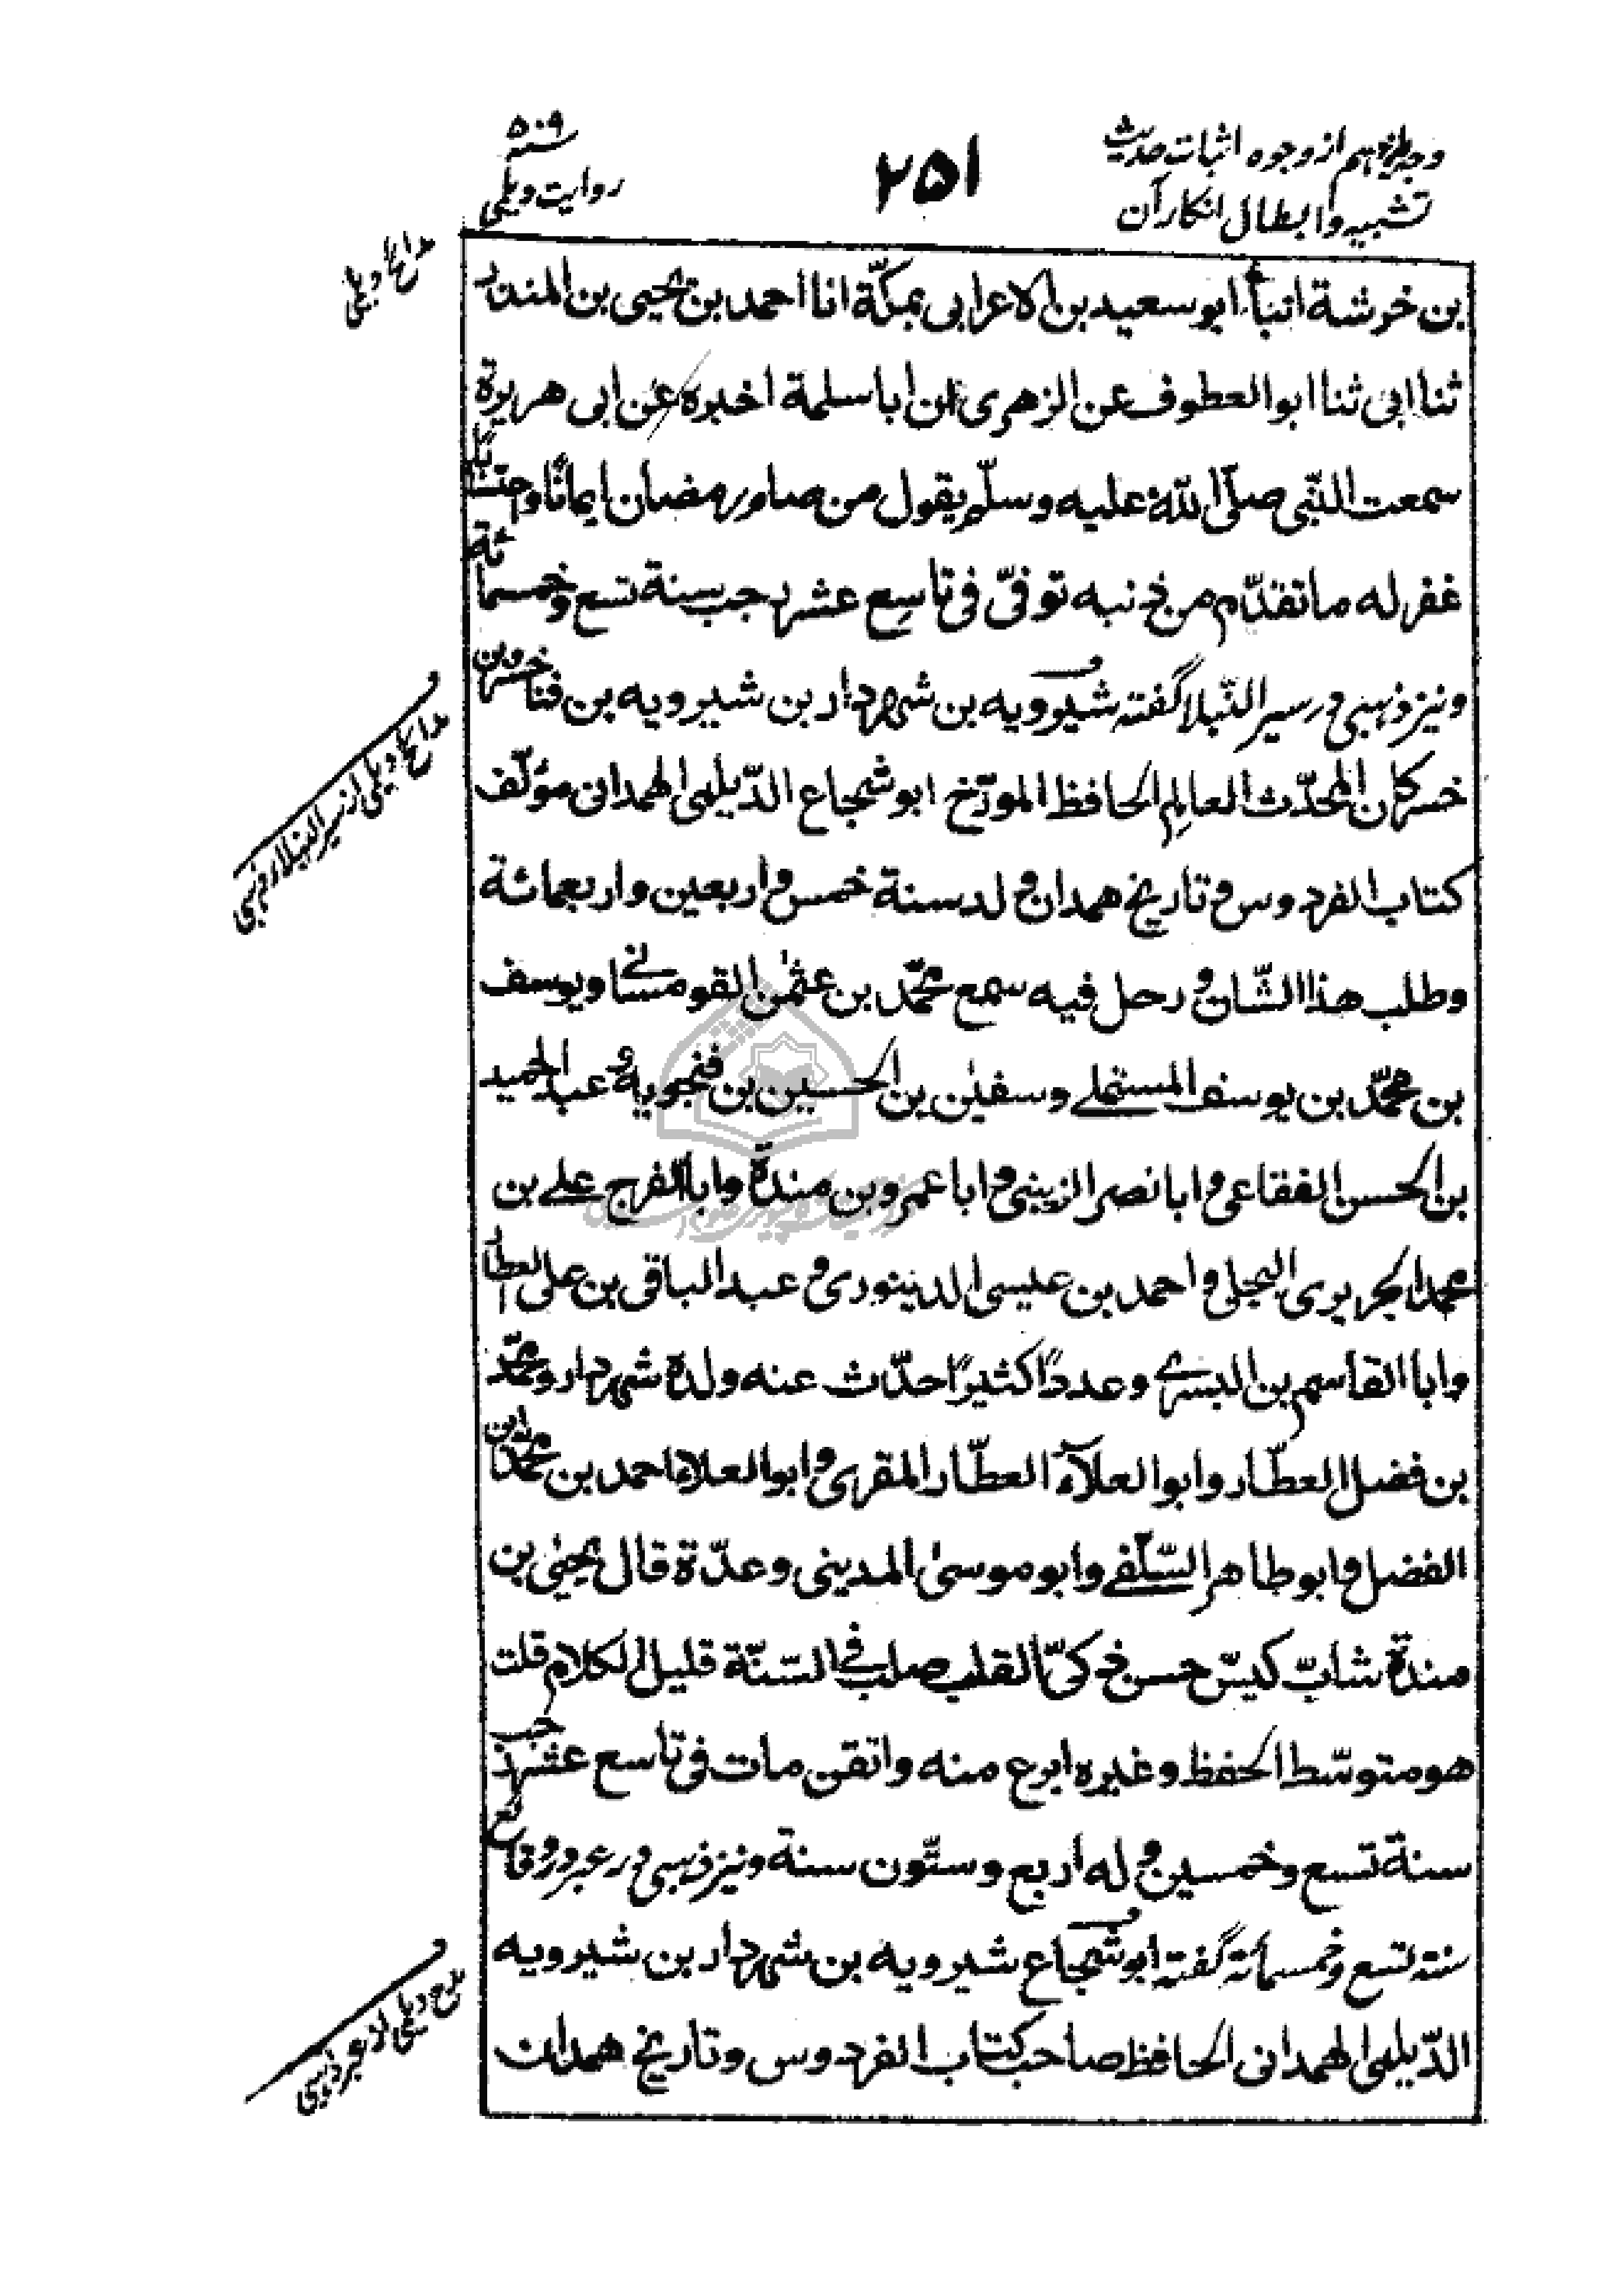 وجه یازدهم از وجوه اثبات حدیث
تشبیه و ابطال انکار آن
۲۵۱
سنه ۵۰۹
روایت دیلمی
مدائح دیلمی
بن خرشة انبأ ابو سعید بن الاعرابی بمکّة انا احمد بن یحیی بن المنذر
ثنا ابی ثنا ابو العطوف عن الزهری ان ابا سلمة اخبره عن ابی هریرة
سمعت النّبی صلّی اللّه علیه وسلّم یقول من صام رمضان ایمانًا واحتسابًا
غفر له ما تقدّم من ذنبه توفّی فی تاسع عشر رجب سنة تسع وخمسمائة
ونیز ذهبی در سیر النّبلا گفته شیرویه بن شهردار بن شیرویه بن فناخسرو بن
خسرکان المحدّث العالم الحافظ المورّخ ابو شجاع الدّیلمی الهمدانی مؤلّف
کتاب الفردوس وتاریخ همدان ولد سنة خمس واربعین واربعمائة
وطلب هذا الشّان ورحل فیه سمع محمّد بن عثمٰن القومسانی ویوسف
بن محمّد بن یوسف المستملی وسفیٰن بن الحسین بن فنجویه وعبد الحمید
بن الحسن الفقاعی وابا نصر الزینبی وابا عمرو بن مندة وابا الفرج علی بن
محمد الجریری البجلی واحمد بن عیسی الدینوری وعبد الباقی بن علی العطار
وابا القاسم بن البسری وعددًا کثیرًا حدّث عنه ولده شهردار ومحمّد
بن فضل العطّار وابو العلآء العطّار المقری وابو العلاء احمد بن محمّد ابن
الفضل وابو طاهر السّلفی وابو موسیٰ المدینی وعدّة قال یحیٰی بن
مندة شابّ کیّس حسن ذکیّ القلب صلب فی السّنّة قلیل الکلام قلت
هو متوسّط الحفظ وغیره ابرع منه واتقن مات فی تاسع عشر رجب
سنة تسع وخمسین وله اربع وستّون سنة ونیز ذهبی در عبر در وقائع
سنة تسع وخمسمائة گفته ابو شجاع شیرویه بن شهردار بن شیرویه
الدّیلمی الهمدانی الحافظ صاحب کتاب الفردوس وتاریخ همدان
مدائح دیلمی از سیر النبلاء ذهبی
مدح دیلمی از عبر ذهبی